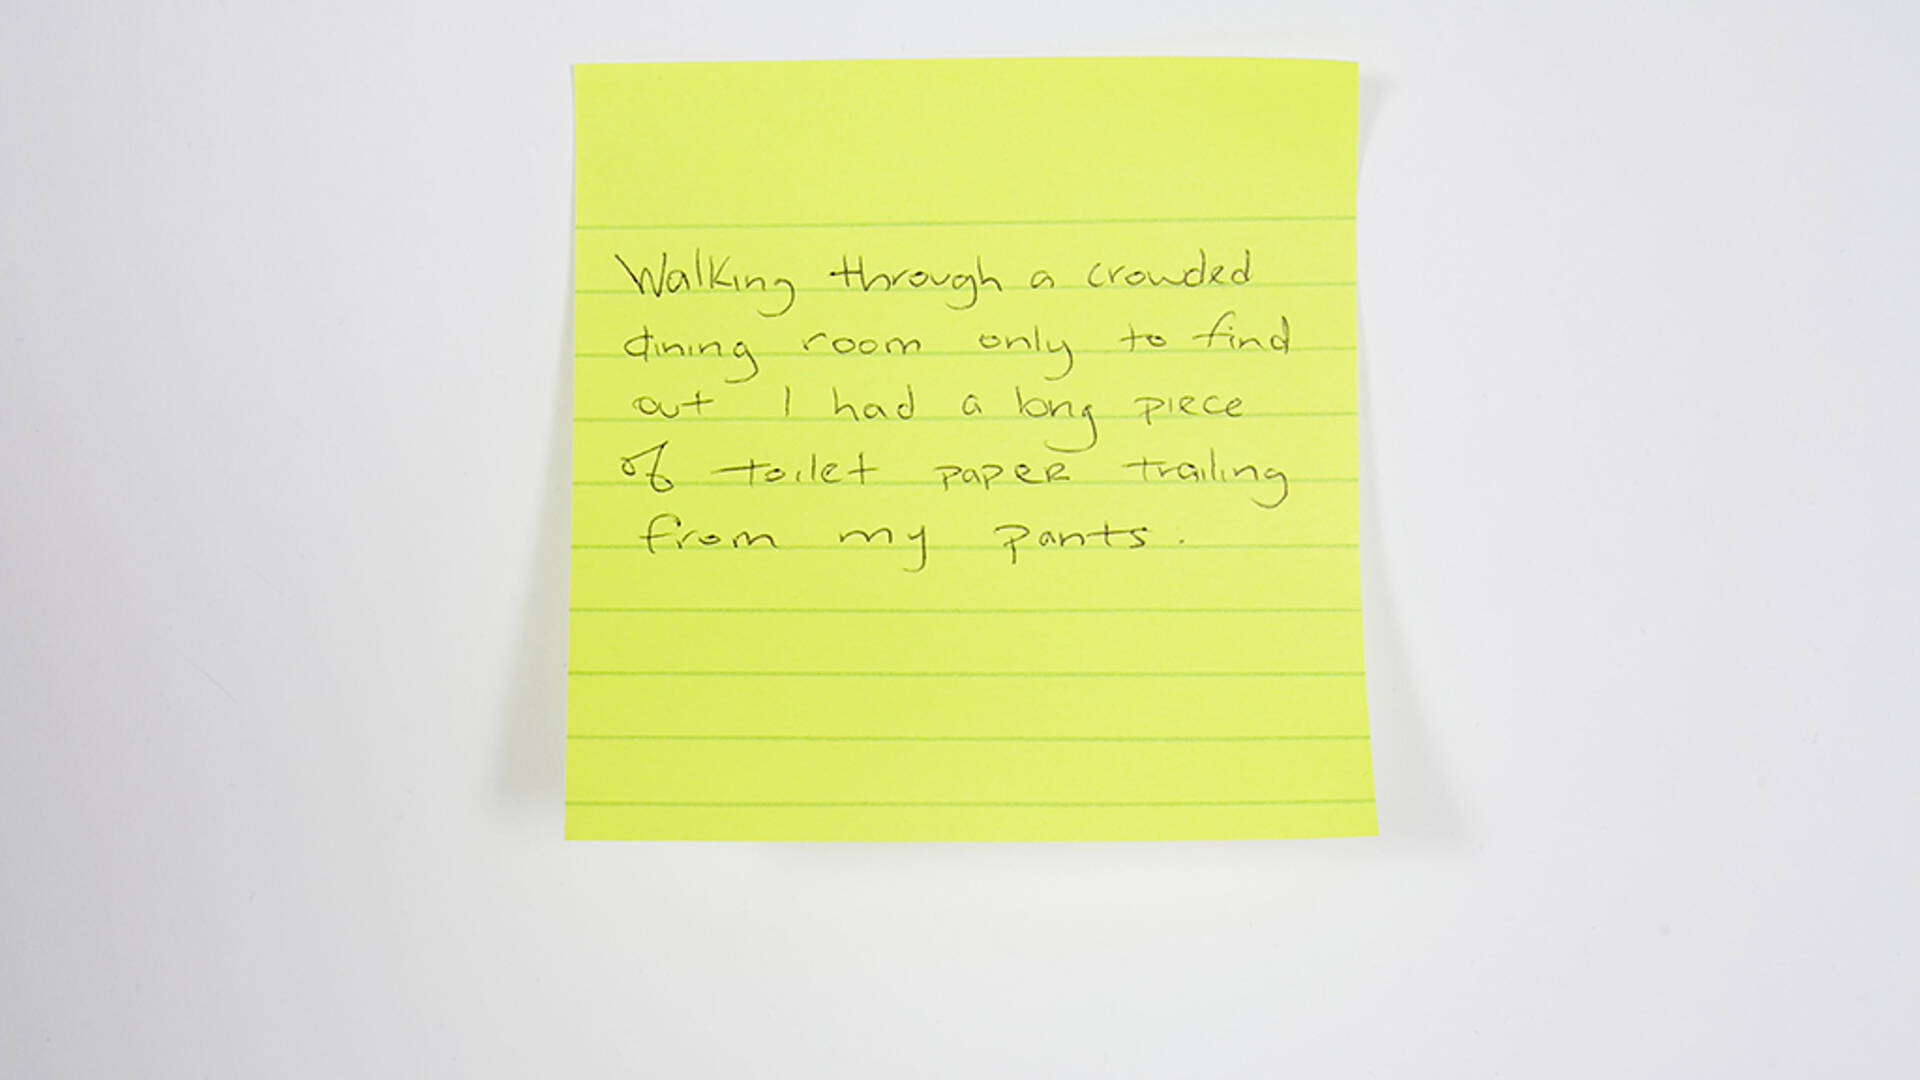 Walking through a crowded
dining room only to find
out I had a long piece
of toilet paper trailing
from my pants.